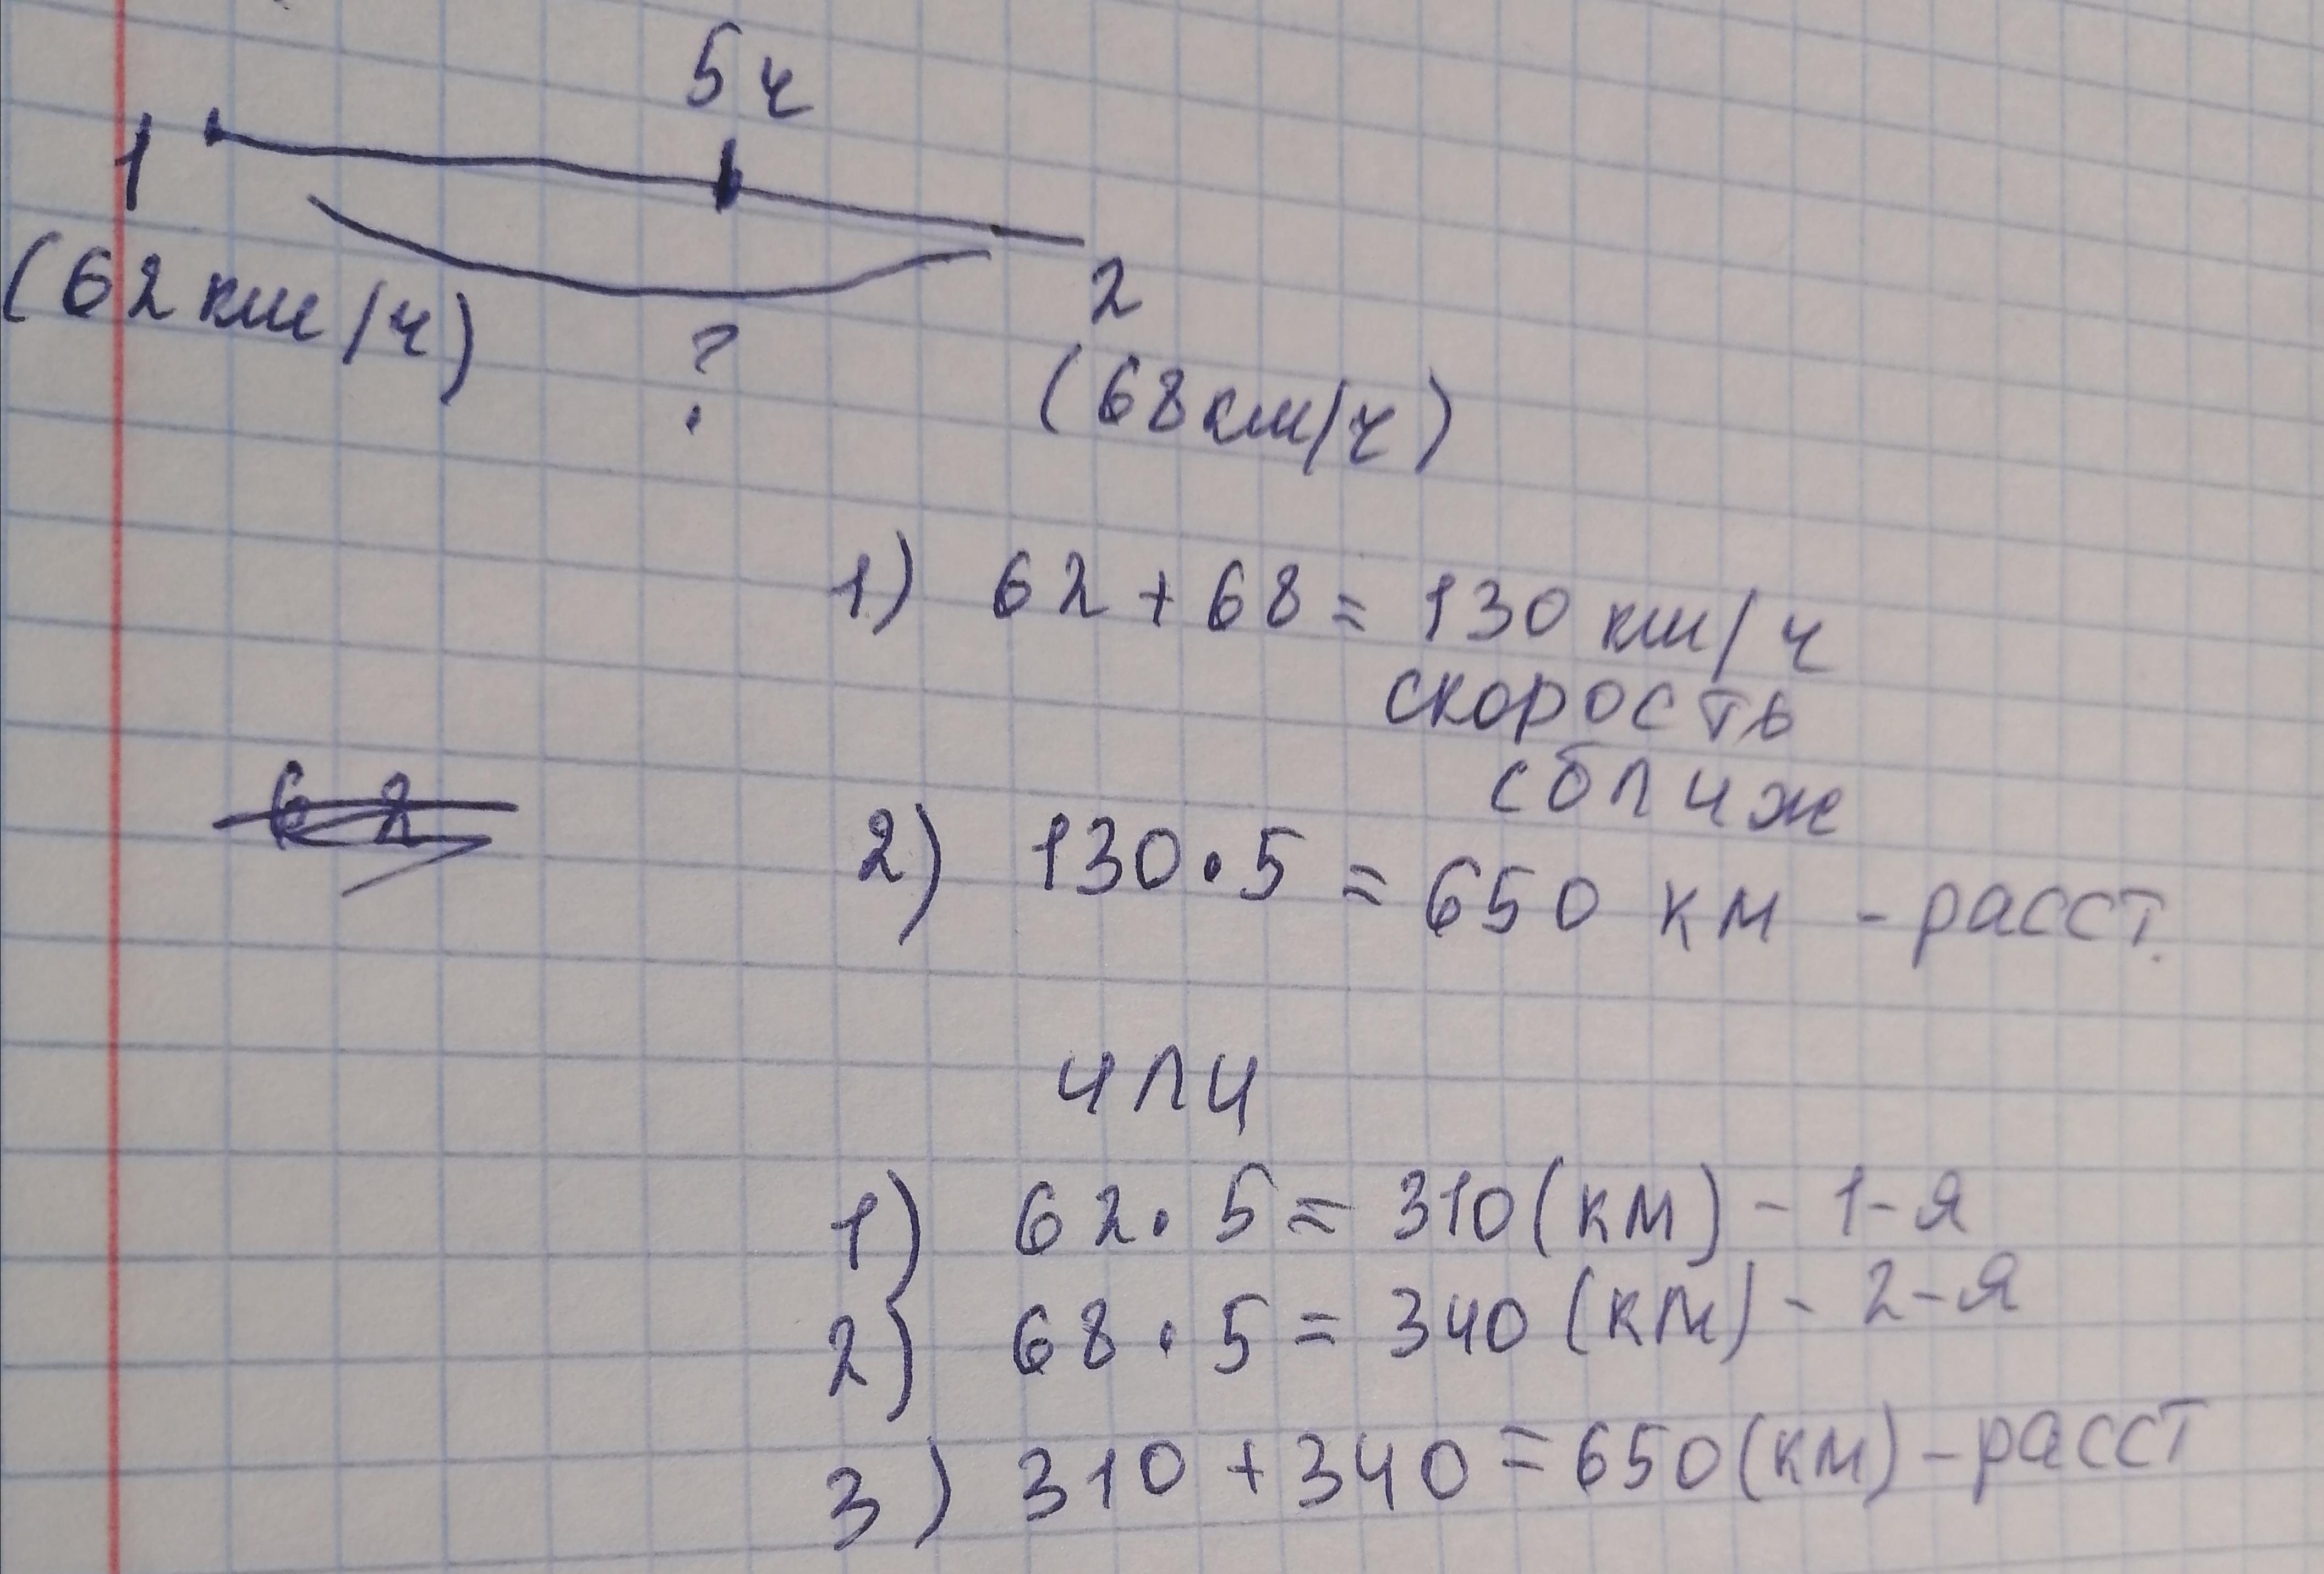 5ч
1
(62 км/ч)
?
2
(68 км/ч)
1) 62 + 68 = 130 км/ч
скорость
сближ
62
2) 130 · 5 = 650 км - расст.
или
1) 62 · 5 = 310 (км) - 1-я
2) 68 · 5 = 340 (км) - 2-я
3) 310 + 340 = 650 (км) - расст